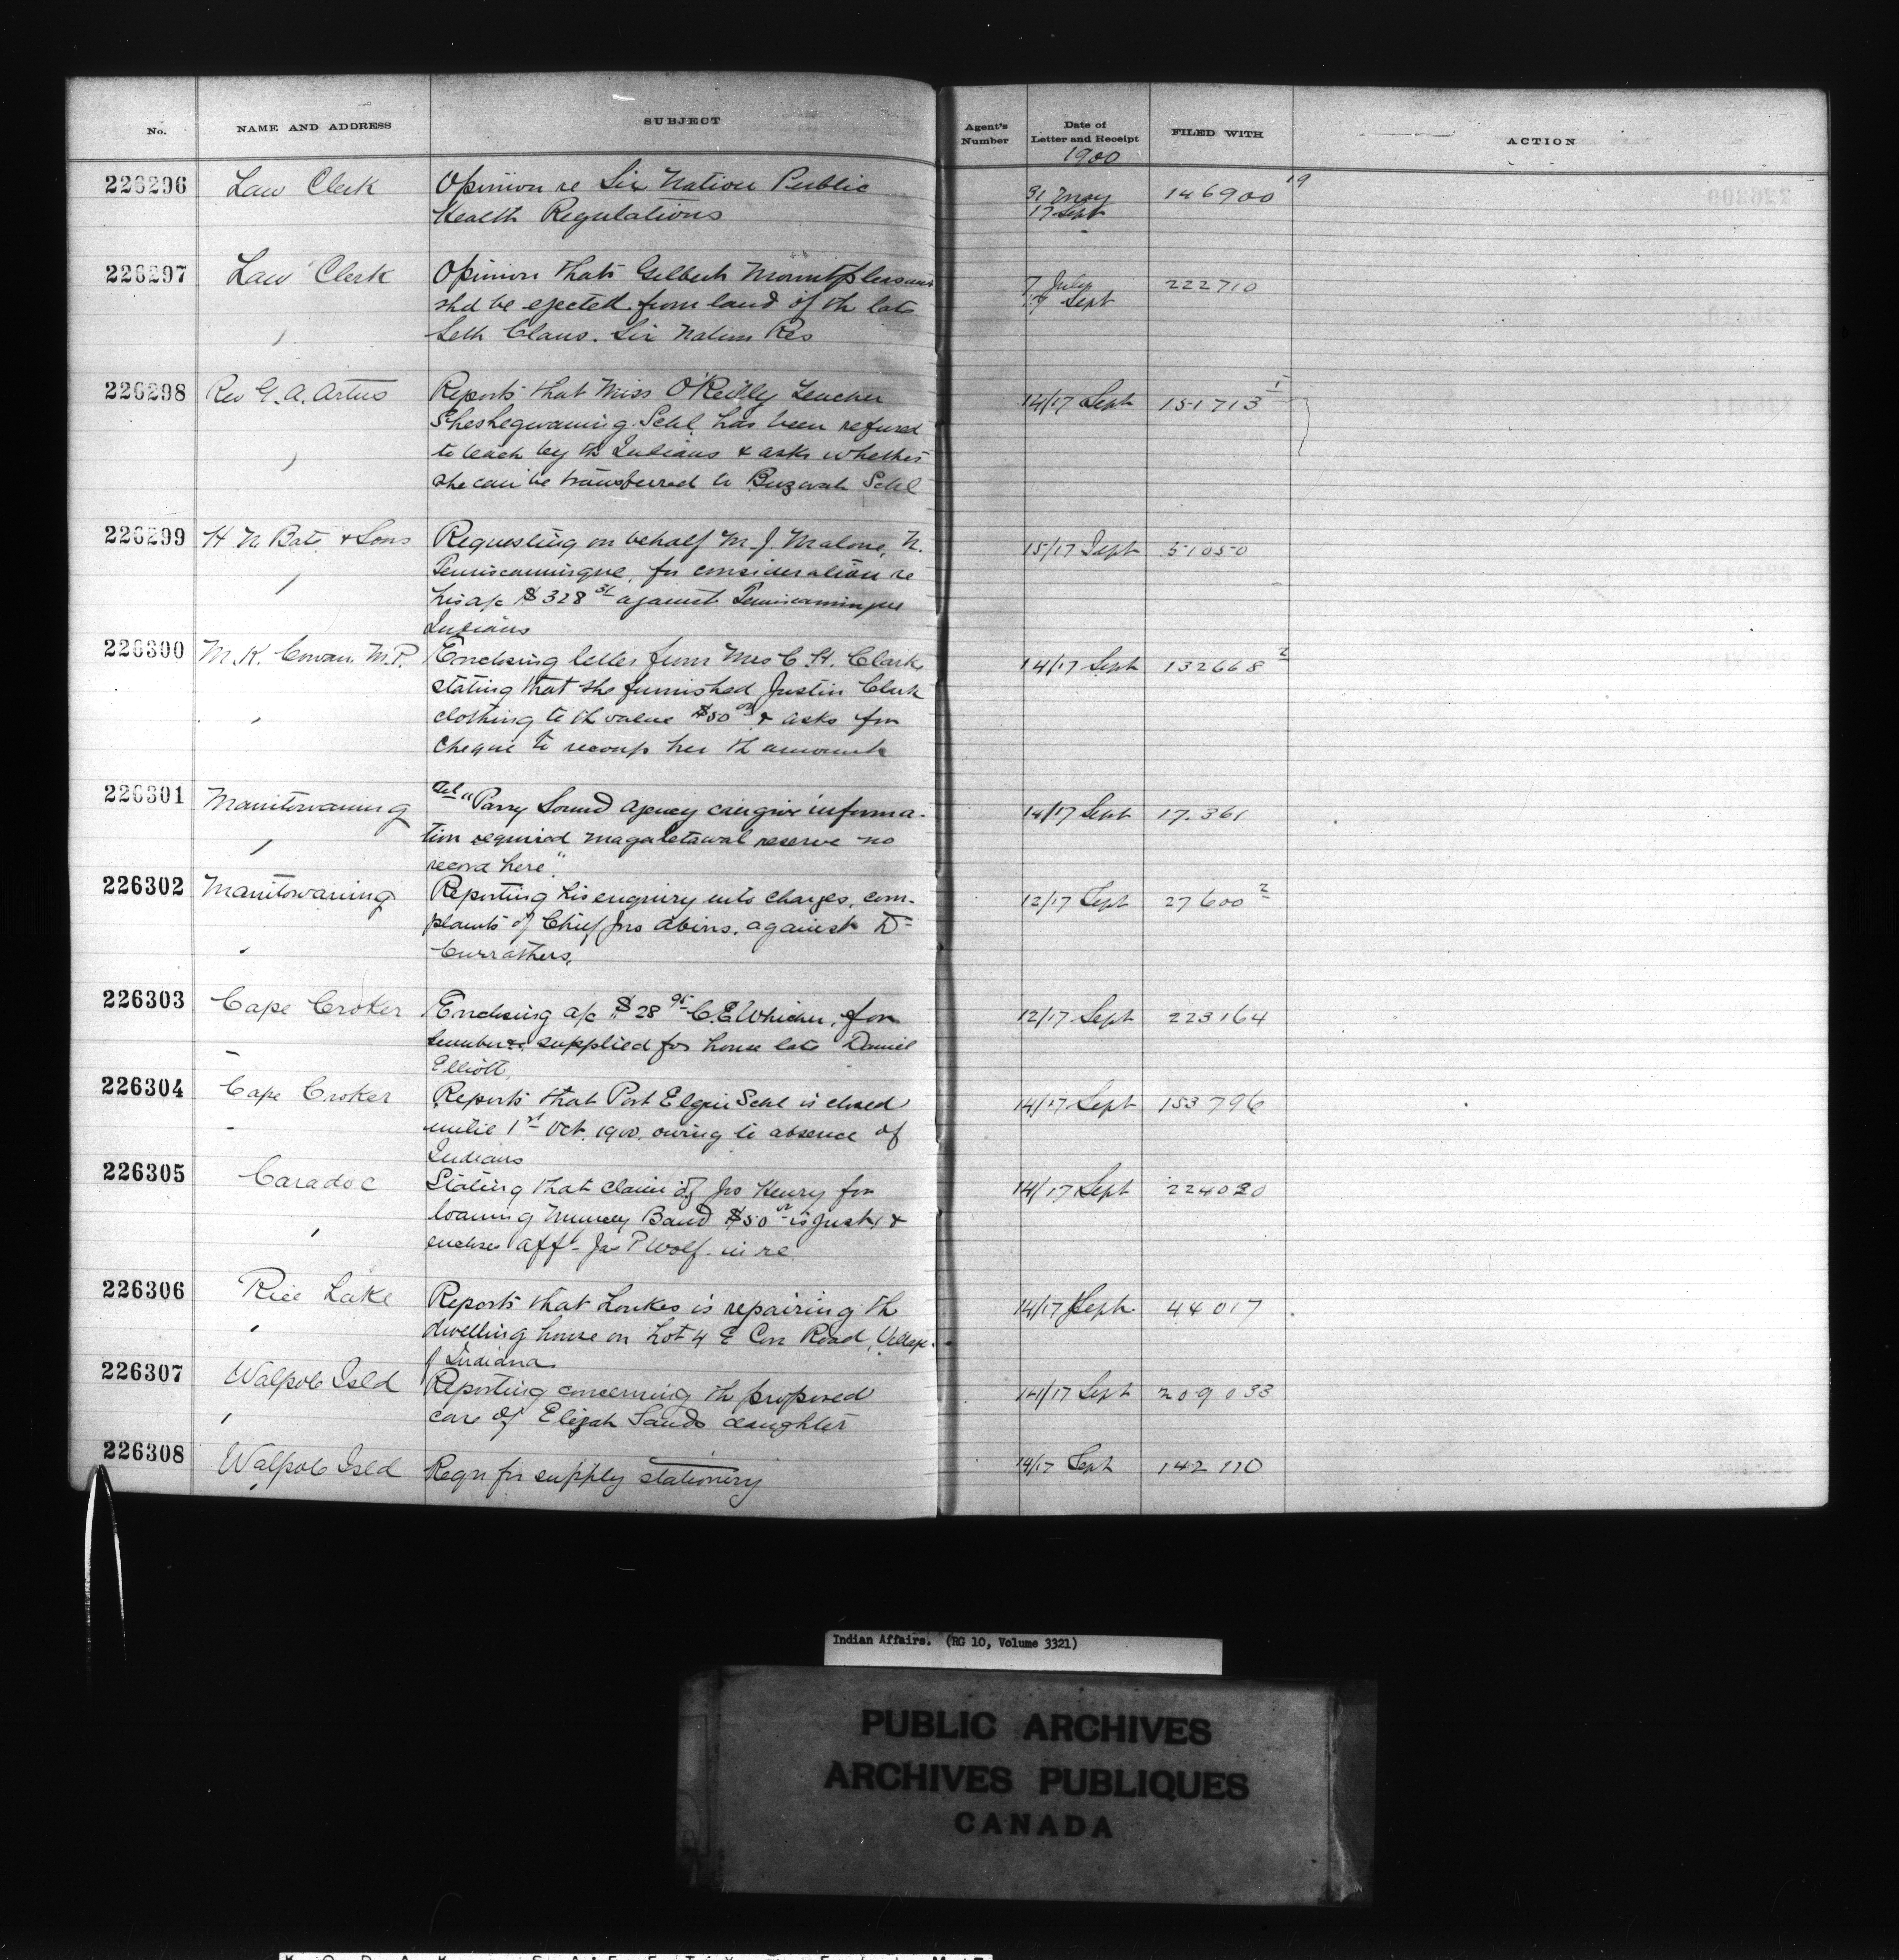 No.
NAME AND ADDRESS
SUBJECT
Agent's Number
Date of Letter and Receipt
1900
FILED WITH
ACTION
226296 Law Clerk Opinion re Six Nation Public
Health Regulations
31 May
17 Sept
146900 19
226297 Law Clerk Opinion that Gilbert Mountpleasant
shd be ejected from land of th late
Seth Claus. Six Nation Res
7 July
17 Sept
222710
226298 Rev G. A. Artus Reports that Miss O'Reilly Teacher
Sheshegwaning Schl. has been refused
to teach by th Indians & asks whether
she can be transferred to Buzwah Schl
14/17 Sept 151713 1
226299 H N Bate & Sons Requesting on behalf M. J. Malone, N.
Temiscamingue, for consideration re
his a/c $328 31 against Temiscamingue
Indians
15/17 Sept 51050
226300 M. K. Cowan M.P. Enclosing letter from Mrs C. H. Clark
stating that she furnished Justin Clark
clothing to th value $50 00 & asks for
cheque to recoup her th amount
14/17 Sept 132668 2
226301 Manitowaning Tel "Parry Sound agency can give informa-
tion required Magaletawal reserve no
record here".
14/17 Sept 17.361
226302 Manitowaning Reporting his enquiry into charges, com-
plaints of Chief Jno Abins. against Dr
Currathers.
12/17 Sept 27600 2
226303 Cape Croker Enclosing a/c $28 95 C. E Whicher, for
lumber supplied for house late Daniel
Elliott.
12/17 Sept 223164
226304 Cape Croker Reports that Port Elgin Schl is closed
until 1st Oct. 1900. owing to absence of
Indians
14/17 Sept 153796
226305 Caradoc Stating that claim of Jno Henry for
loaning Muncey Band $50 00 is just, &
encloses aff- Jas P Wolf. in re
14/17 Sept 224020
226306 Rice Lake Reports that Loukes is repairing th
dwelling house on Lot 4 E Con Road, Village
of Indiana
14/17 Sept 44017
226307 Walpole Isld Reporting concerning th proposed
care of Elijah Sands daughter
14/17 Sept 209033
226308 Walpole Isld Reqn for supply stationery
14/17 Sept 142110
Indian Affairs. (RG 10, Volume 3321)
PUBLIC ARCHIVES
ARCHIVES PUBLIQUES
CANADA